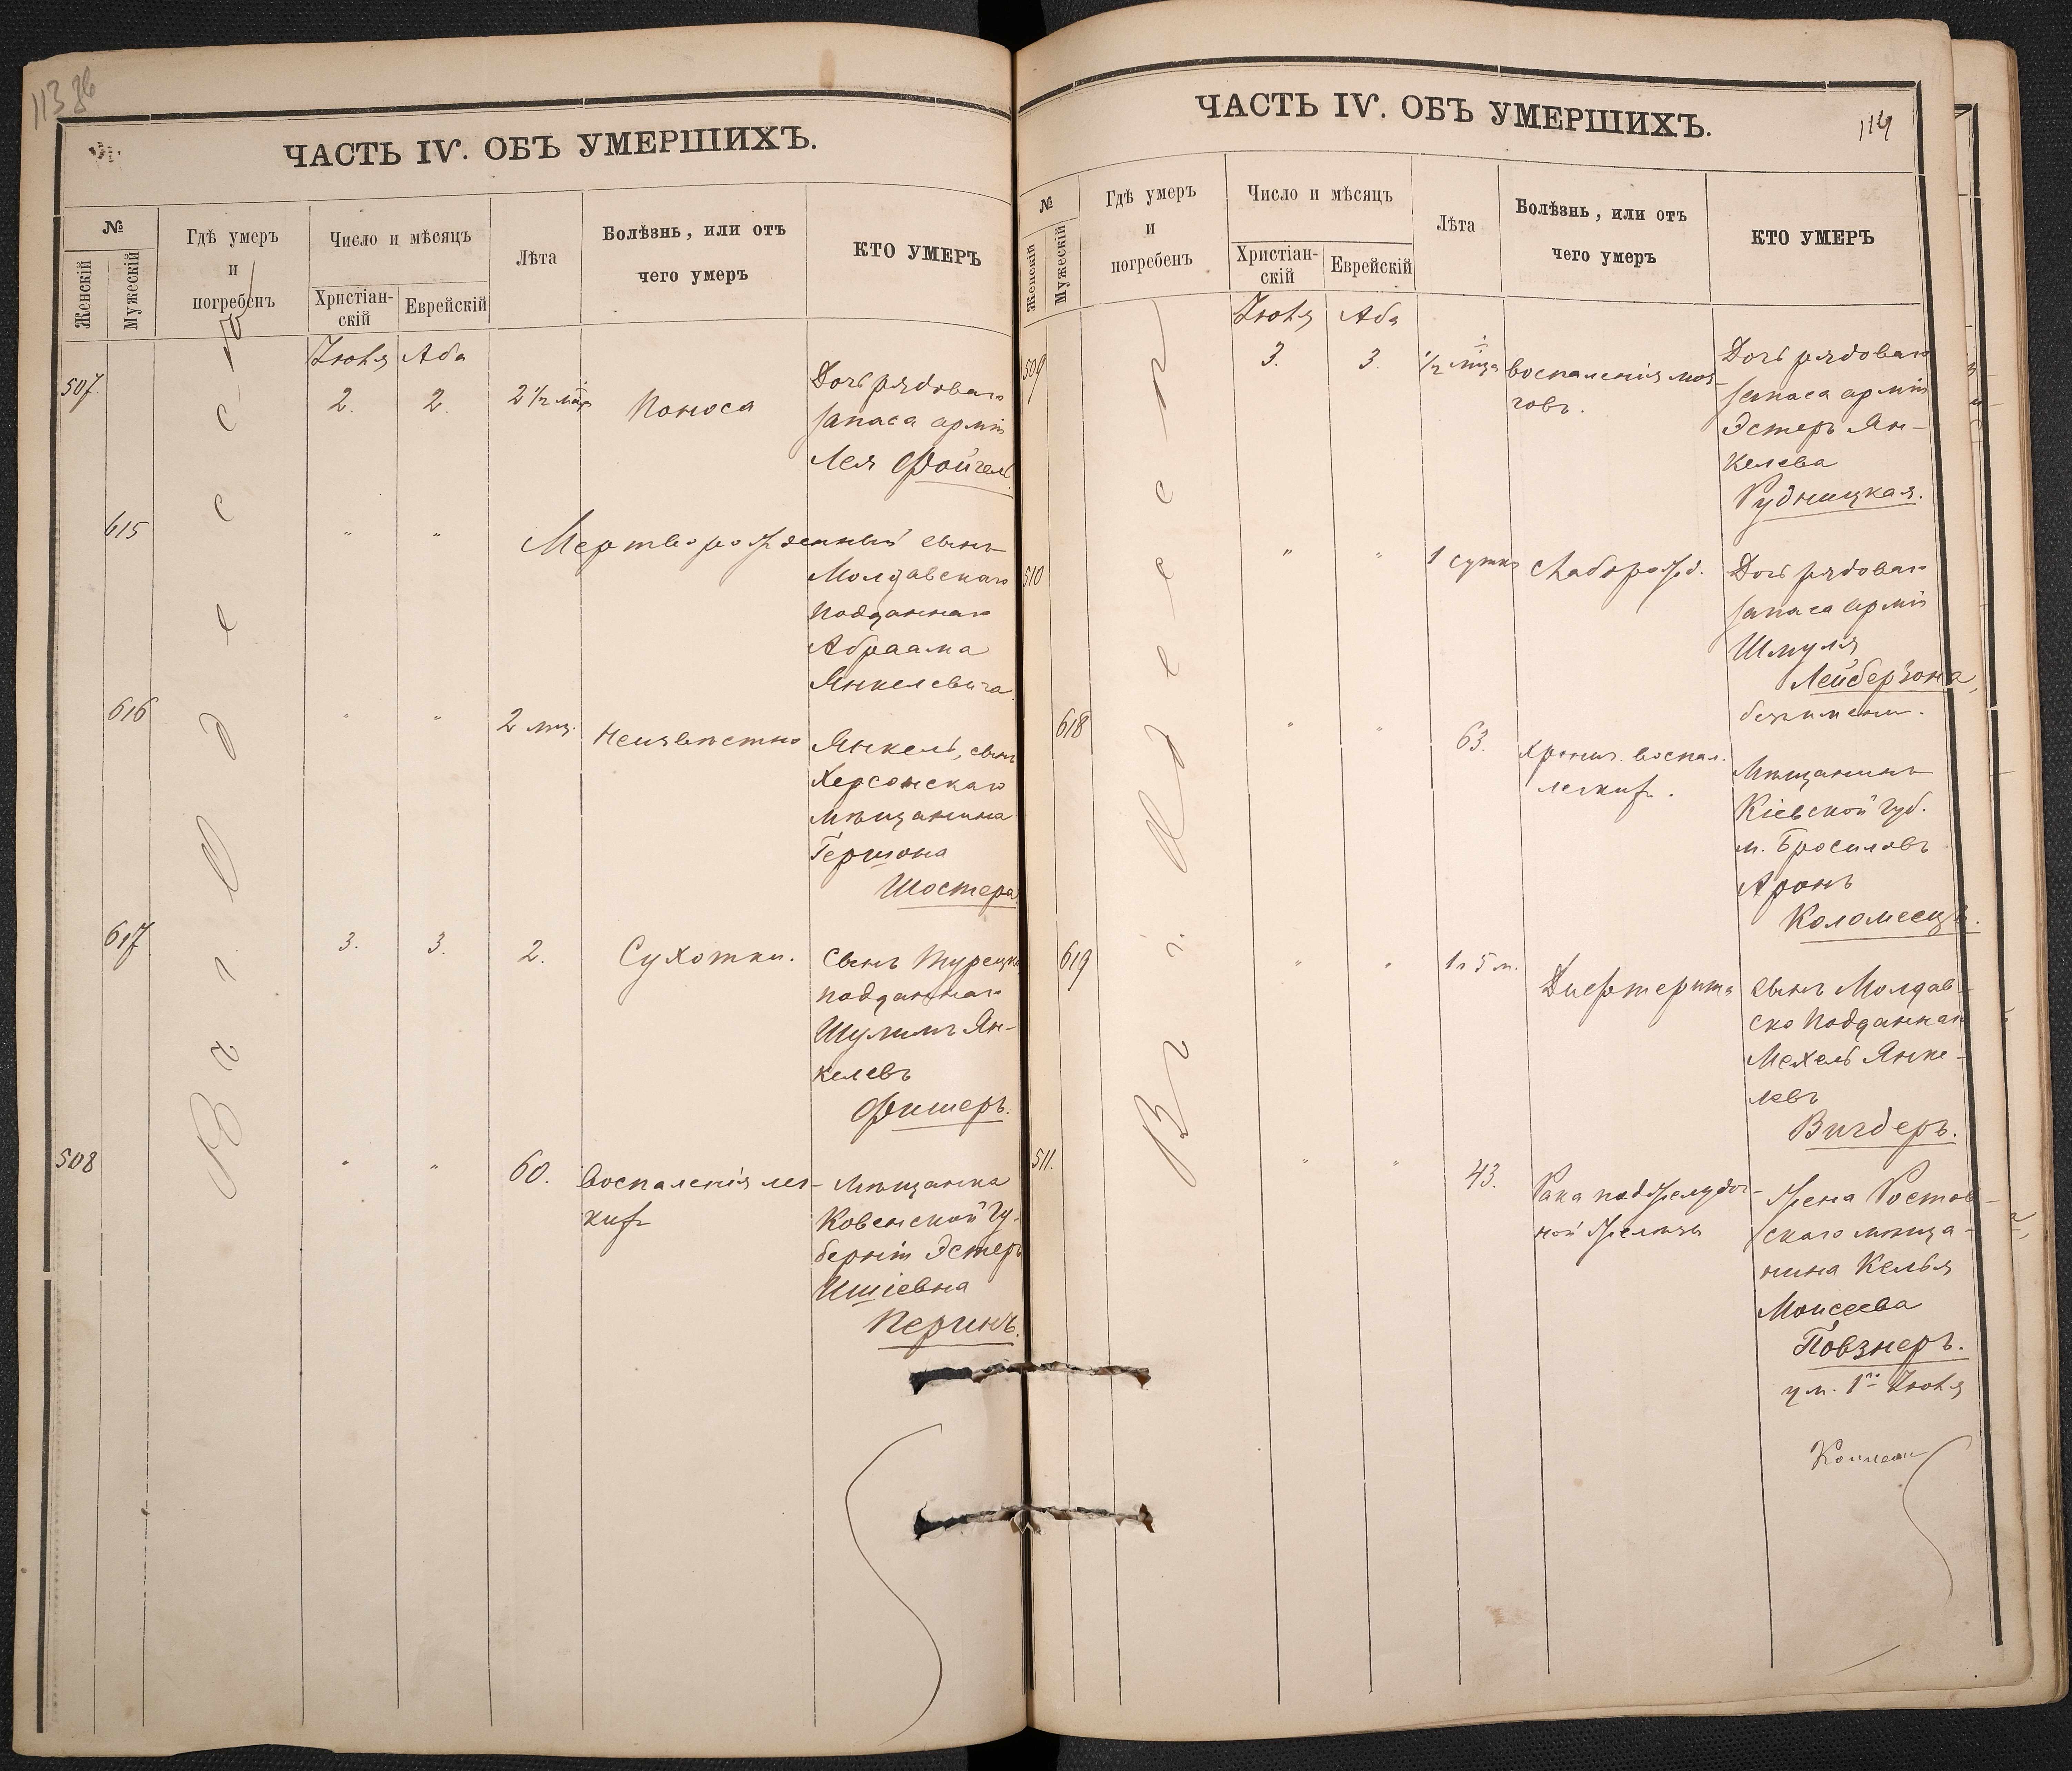 113 об
ЧАСТЬ IV. ОБЪ УМЕРШИХЪ.
№
Женскій
Мужескій
Гдѣ умеръ
и
погребенъ
Число и мѣсяцъ
Христіан-
скій
Еврейскій
Лѣта
Болѣзнь, или отъ
чего умеръ
КТО УМЕРЪ
Въ г. Одессѣ
Іюля Аба
507.
2. 2.
2 1/2 мѣс
Поноса
Дочь рядоваго
запаса арміи
Лея Фойгель
615
" "
Мертворожденный сынъ
Молдавскаго
подданнаго
Абраама
Янкелевича
616
" "
2 мѣс.
Неизвѣстно
Янкель, сынъ
Херсонскаго
мѣщанина
Гершона
Шостера
617
3. 3.
2.
Сухотки.
Сынъ Турецк
подданнаго
Шулимъ Ян-
келевъ
Фишеръ.
508
" "
60.
Воспаленія лег-
кихъ
Мѣщанка
Ковенской гу-
берніи Эстеръ
Ишіевна
Перинъ.
ЧАСТЬ IV. ОБЪ УМЕРШИХЪ.
114
№
Женскій
Мужескій
Гдѣ умеръ
и
погребенъ
Число и мѣсяцъ
Христіан-
скій
Еврейскій
Лѣта
Болѣзнь, или отъ
чего умеръ
КТО УМЕРЪ
Въ г. Одессѣ
Іюля Аба
509
3. 3.
1/2 мѣса
Воспаленія моз-
говъ.
Дочь рядоваго
запаса арміи
Эстеръ Ян-
келева
Рудницкая.
510
" "
1 сутки
Слаборожд.
Дочь рядоваго
запаса арміи
Шмуля
Лейберзона,
безъ имени.
618
" "
63.
Хронич. воспал.
легкихъ.
Мѣщанинъ
Кіевской губ.
м. Бросиловъ
Аронъ
Коломеецъ.
619
" "
1 г 5 м.
Дифтерита
Сынъ Молдав-
ско подданнаго
Мехель Янке-
левъ
Вигдеръ.
511.
" "
43.
Рака поджелудоч-
ной железы
Жена Ростов-
скаго мѣща-
нина Келья
Моисеева
Повзнеръ.
ум. 1го Іюля